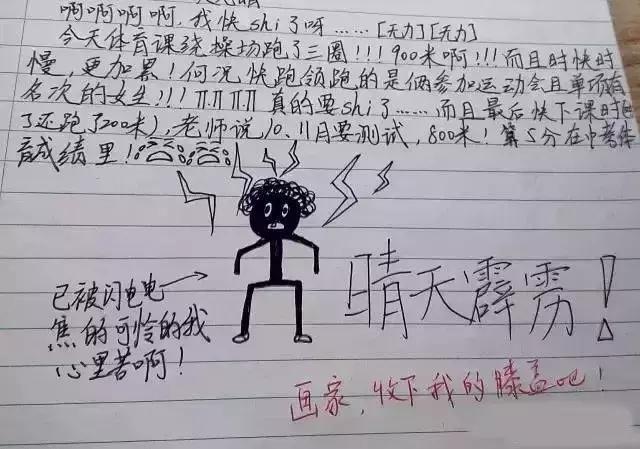 啊啊啊啊啊,我快shi了呀……[无力][无力]
今天体育课绕操场跑了三圈!!!900米啊!!!而且时快时
慢,更加累!何况,快跑领跑的是俩参加运动会且单项有
名次的女生!!!TT TT TT TT 真的要shi了……而且最后快下课时
了还跑了200米),老师说10、11月要测试,800米!算5分在中考体
育成绩里!
已被闪电电
焦的可怜的我
心里苦啊!
晴天霹雳!
画家,收下我的膝盖吧!